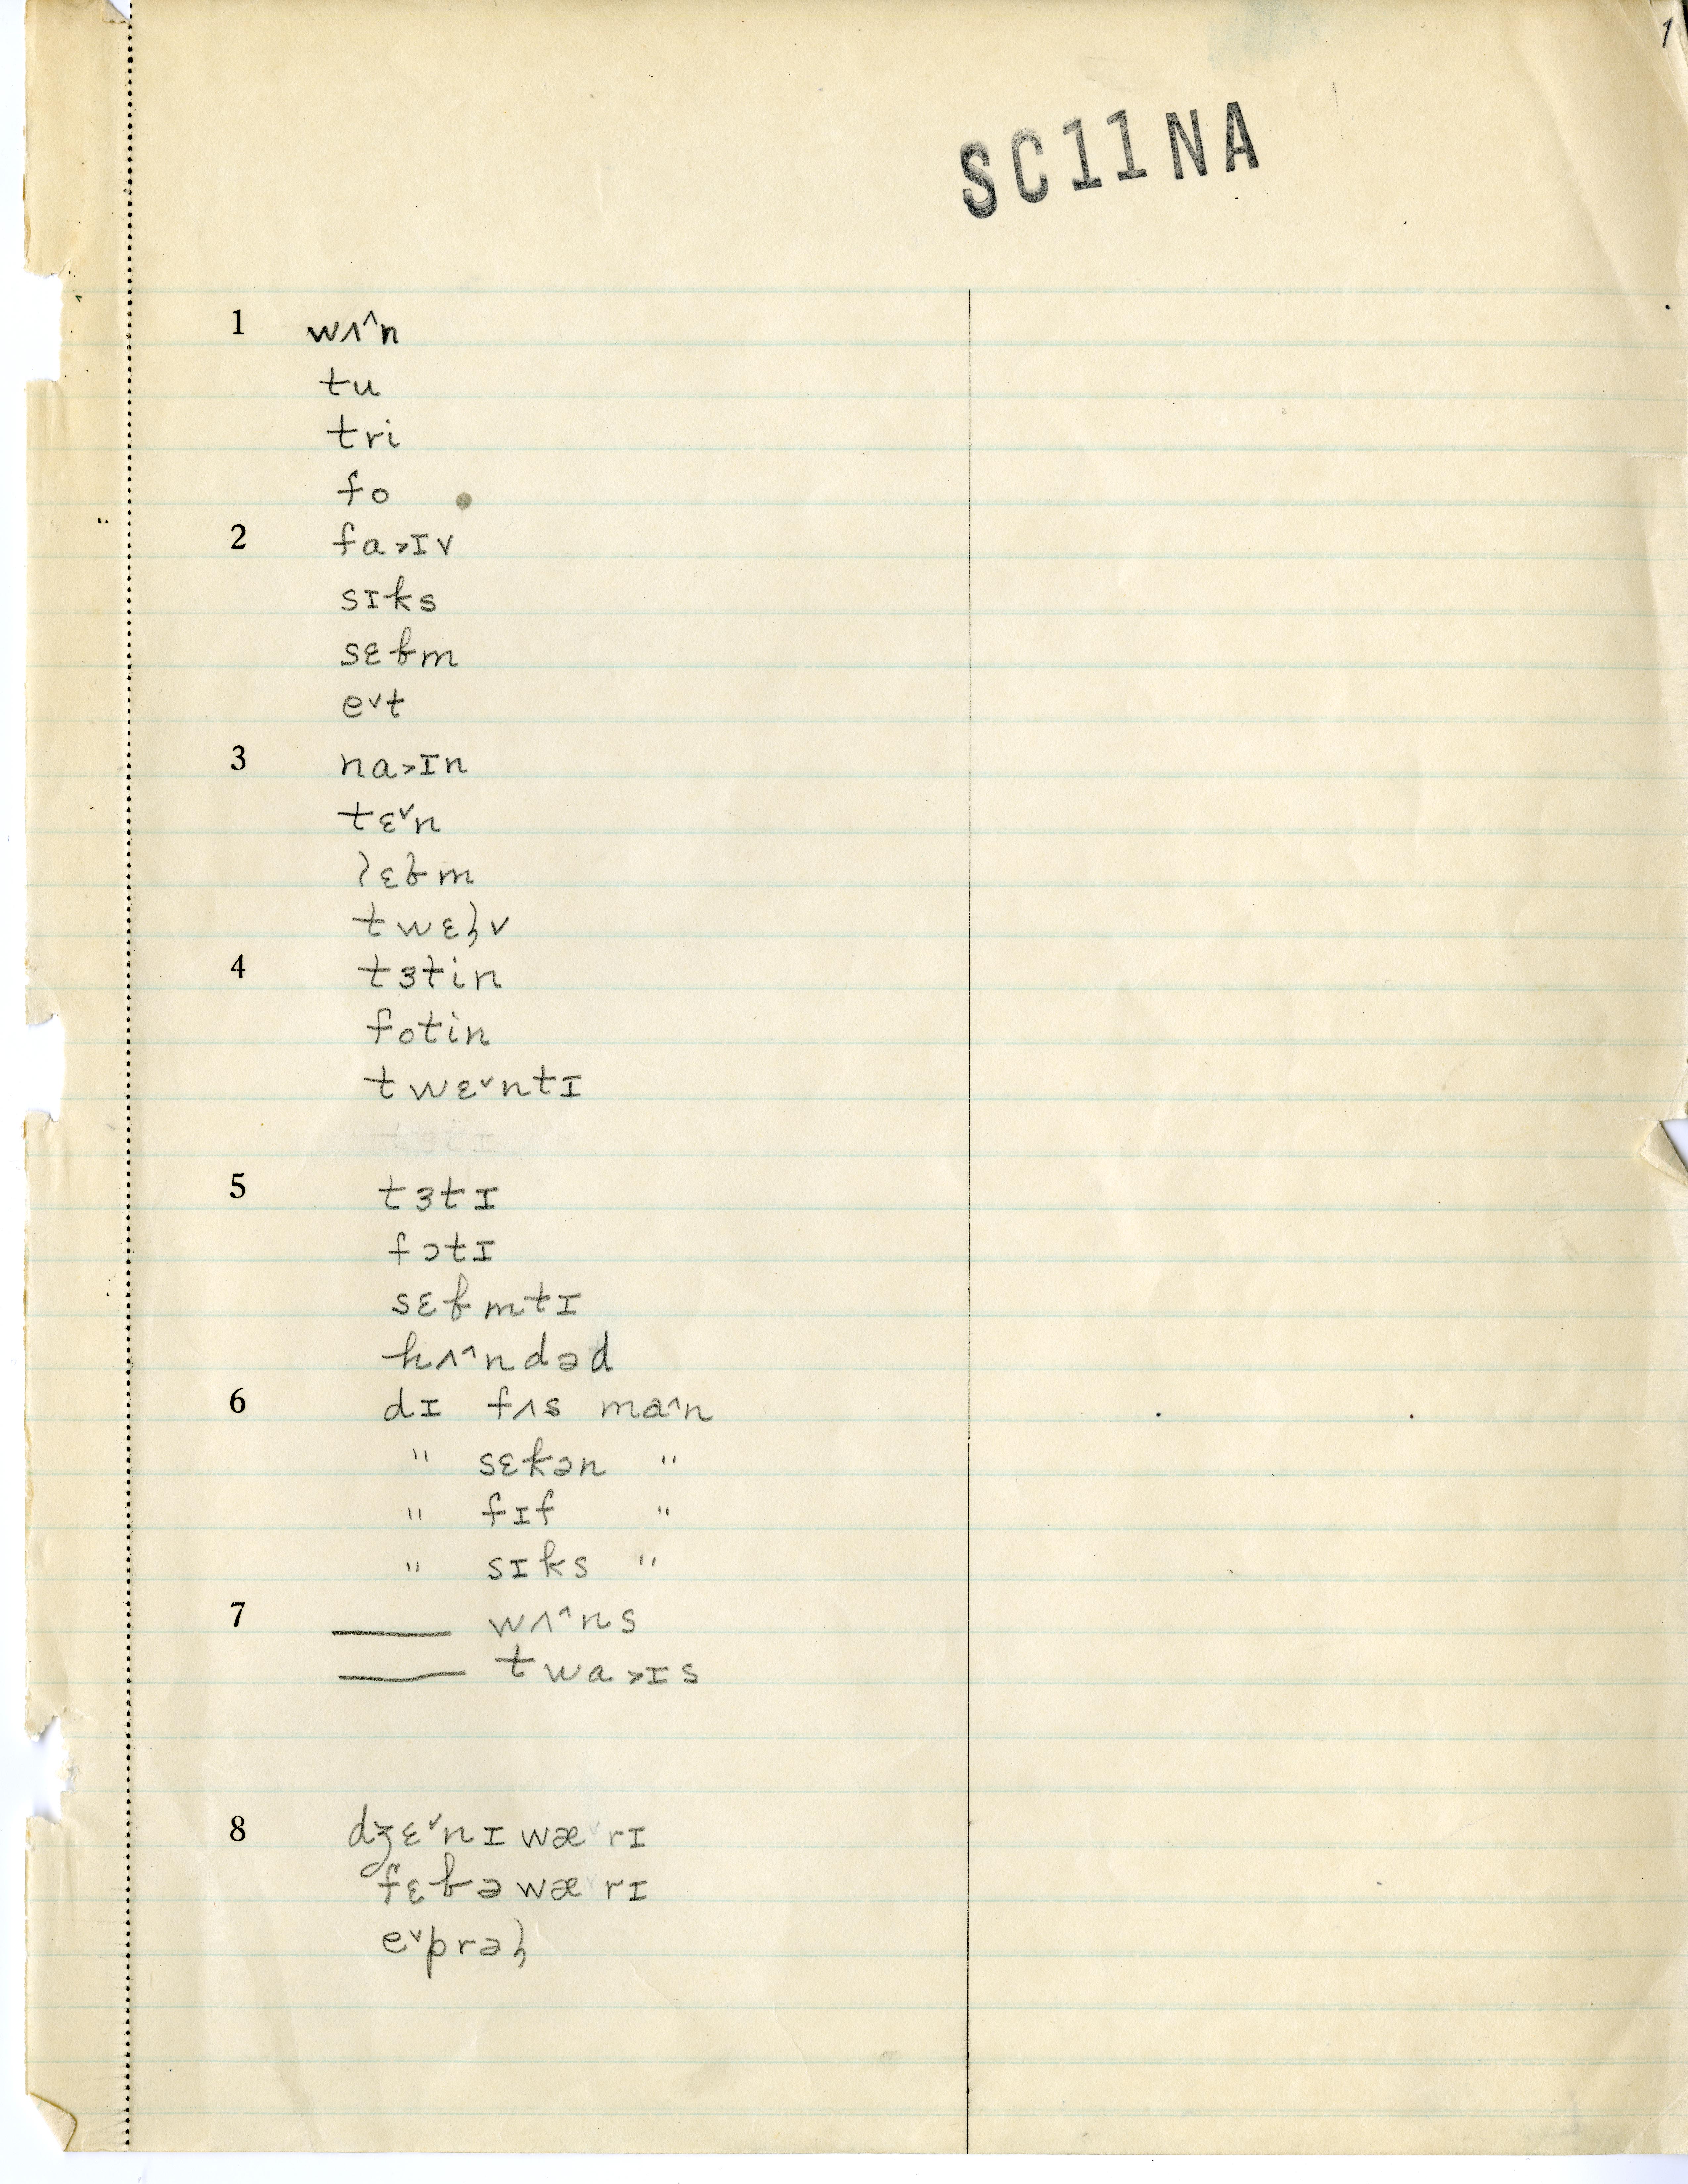 1
SC11NA
1 wʌ^n
tu
tri
fo
2 fa>ɪv
sɪks
sɛbm
e˅t
3 na>ɪn
tɛ˅n
lɛbm
twɛɫv
4 tɜtin
fotin
twɛ˅ntɪ
5 tɜtɪ
fɔtɪ
sɛbmtɪ
hʌ^ndəd
6 dɪ fʌs ma^n
" sɛkən "
" fɪf "
" sɪks "
7 ___ wʌ^ns
___ twa>ɪs
8 dʒɛ˅nɪwæ˅rɪ
fɛbəwærɪ
e˅prəɫ